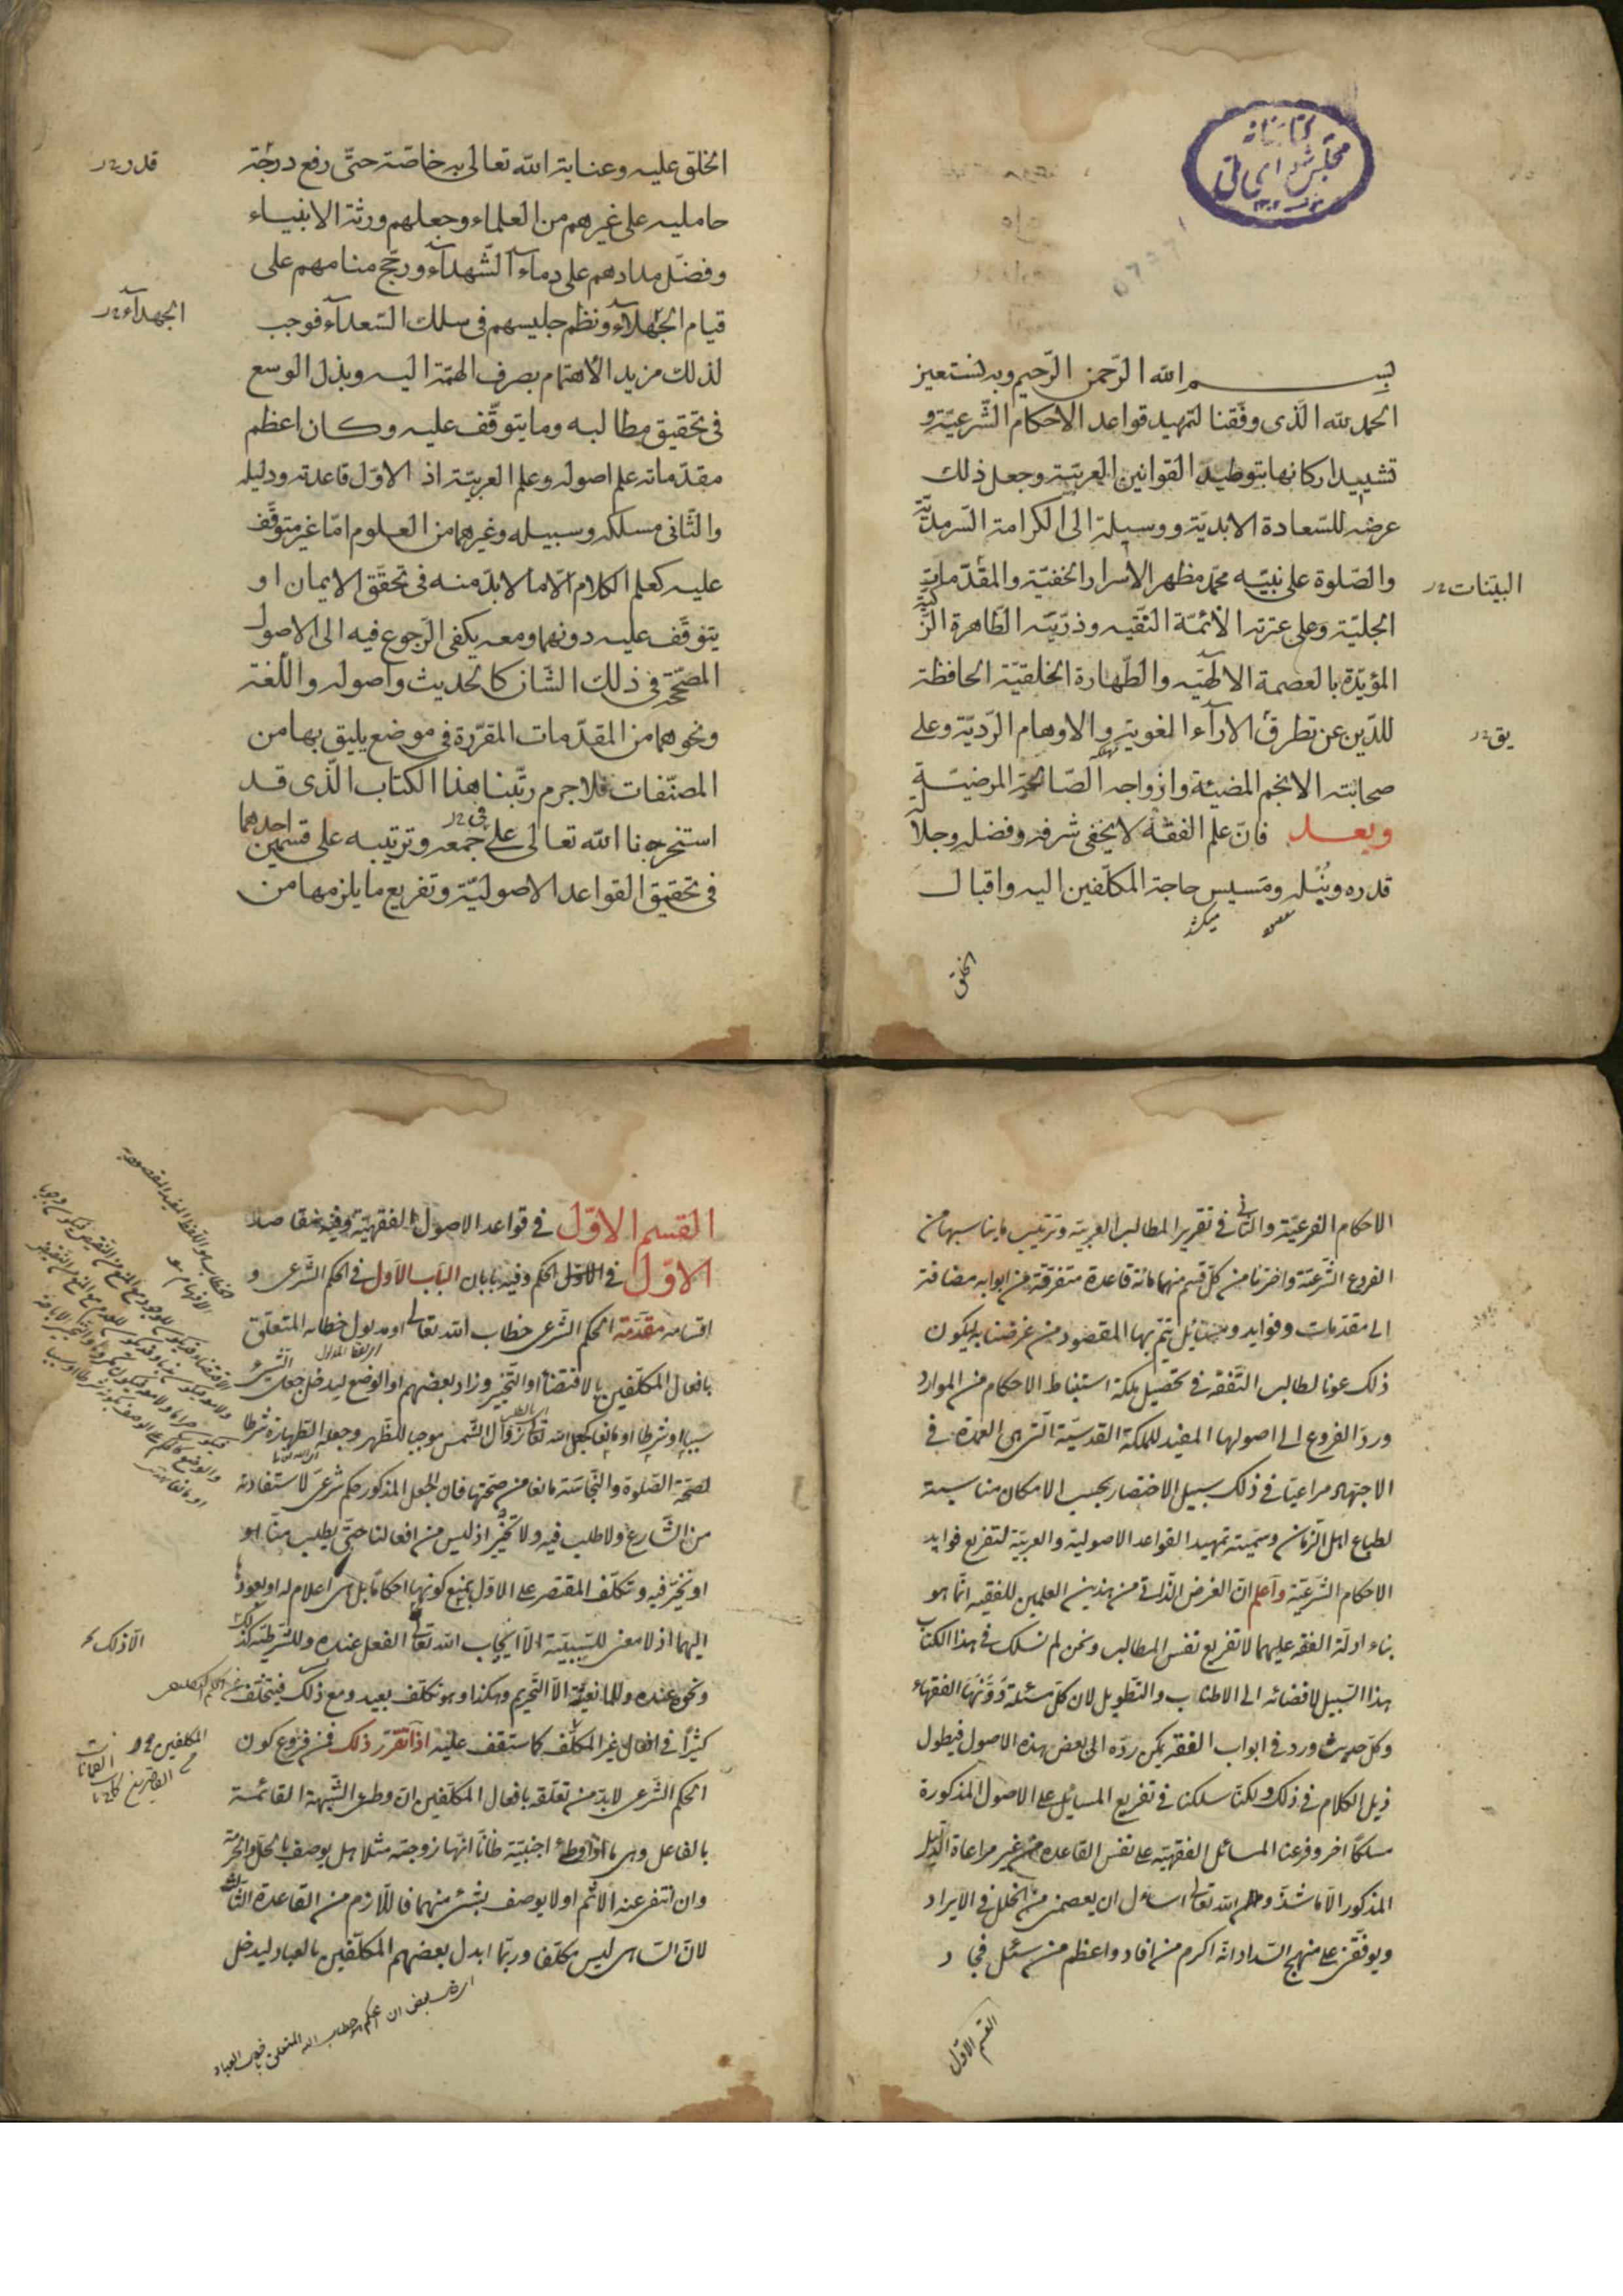 كتابخانه
مجلس شورای ملی
بسم الله الرّحمن الرّحيم وبه نستعين
الحمد لله الّذى وفّقنا لتمهيد قواعد الاحكام الشّرعيّة و
تشييد اركانها بتوطيد القوانين العربيّة وجعل ذلك
عرضه للسّعادة الابديّة ووسيلة الى الكرامة السّرمديّة
والصّلوة على نبيّه محمّد مظهر الاسرار الخفيّة والمقدّمات
البيّنات
الجليّة وعلى عترته الائمّة النّقيه وذرّيّته الطّاهرة الزّكيّة
المؤيّدة بالعصمة الالهيّه والطّهارة الخلقيّة الحافظة
للدّين عن تطرق الارآء المغوية والاوهام الرّديّة وعلى
يق
صحابته الانجم المضيئة وازواجه الصّالحة المرضيّة
وبعد فانّ علم الفقه لا يخفى شرفه وفضله وجلالة
قدره ونُبْله ومسيس حاجة المكلّفين اليه واقبال
الخلق
الخلق عليه وعناية الله تعالى به خاصّة حتّى رفع درجة
قدر
حامليه على غيرهم من العلماء وجعلهم ورثة الانبياء
وفضّل مدادهم على دمآء الشّهدآء ورجّح منامهم على
قيام الجهلآء ونظم جليسهم فى سلك السّعدآء فوجب
الجهدآء
لذلك مزيد الاهتمام بصرف الهمّة اليه وبذل الوسع
فى تحقيق مطالبه وما يتوقّف عليه وكان اعظم
مقدّماته علم اصوله وعلم العربيّة اذ الاوّل قاعدته ودليله
والثّانى مسلكه وسبيله وغيرهما من العلوم امّا غير متوقّف
عليه كعلم الكلام الّا ما لا بدّ منه فى تحقّق الايمان او
يتوقّف عليه دونهما ومعه يكفى الرّجوع فيه الى الاصول
المصحّحة فى ذلك الشّان كالحديث واصوله واللّغة
ونحوهما من المقدّمات المقرّرة فى موضع يليق بها من
المصنّفات فلا جرم رتّبنا هذا الكتاب الّذى قد
استخرنا الله تعالى على جمعه وترتيبه على قسمين احدهما
فى تحقيق القواعد الاصوليّة وتفريع ما يلزمها من
الاحكام الفرعيّة والثّانى فى تقرير المطالب العربيّة وترتيب ما يناسبها من
الفروع الشّرعيّة واخترنا من كلّ قسم منهما مائة قاعدة متفرّقة من ابوابه مضافة
الى مقدّمات وفوايد ومسائل يتمّ بها المقصود من غرضنا به ليكون
ذلك عونا لطالب التّفقّه فى تحصيل ملكة استنباط الاحكام من الموارد
وردّ الفروع الى اصولها المفيد للملكة القدسيّة الّتى هى العمدة فى
الاجتهاد مراعيًا فى ذلك سبيل الاختصار بحسب الامكان مناسبة
لطباع اهل الزّمان وسمّيته تمهيد القواعد الاصولية والعربيّة لتفريع فوايد
الاحكام الشّرعيّة واعلم انّ الغرض الذّاتى من هذين العلمين للفقيه انّما هو
بناء ادلّة الفقه عليهما لا تفريع نفس المطالب ونحن لم نسلك فى هذا الكتاب
هذا السّبيل لافضائه الى الاطناب والتّطويل لان كلّ مسئلة دوّنها الفقهاء
وكلّ حديث ورد فى ابواب الفقه يمكن ردّه الى بعض هذه الاصول فيطول
ذيل الكلام فى ذلك ولكنّا سلكنا فى تفريع المسايل على الاصول المذكورة
مسلكًا اخر وفرعنا المسائل الفقهيّة على نفس القاعدة من غير مراعاة الدّليل
المذكور الّا ما شذّ والله تعالى اسأل ان يعصمنى من الخلل فى الايراد
ويوفّقنى على منهج السّداد انّه اكرم من افاد واعظم من سئل فجاد
القسم الاوّل
القسم الاوّل فى قواعد الاصول الفقهيّة وفيه مقاصد
الاوّل فى الحكم وفيه بابان الباب الاوّل فى الحكم الشّرعى و
اقسامه مقدّمة الحكم الشّرعى خطاب الله تعالى او مدلول خطابه المتعلّق
بافعال المكلّفين بالاقتضاء او التّخيير وزاد بعضهم او الوضع ليدخل جعل الشّىء
سببا او شرطا او مانعا كجعل الله تعالى زوال الشّمس موجبا للظّهر وجعله الطّهارة شرطا
لصحّة الصّلوة والنّجاسة مانعا من صحّتها فان الجعل المذكور حكم شرعىّ لاستفادته
من الشّارع ولا طلب فيه ولا تخيير اذ ليس من افعالنا حتّى يطلب منّا هو
او نخيّر فيه وتكلّف المقتصر على الاوّل بمنع كونها احكامًا بل هى اعلام له او بعودها
اليهما اذ لا معنى للسّببيّة الّا ايجاب الله تعالى الفعل عنده وللشّرطيّة كذلك
الّا ذلك
ونحوه عنده وللمانعيّة الّا التّحريم وهكذا وهو تكلّف بعيد ومع ذلك فيتخلّف
كثيرًا فى افعال غير المكلّف كما ستقف عليه اذا تقرّر ذلك فمن فروع كون
المكلفين
الحكم الشّرعى لا بدّ من تعلّقه بافعال المكلّفين ان وطى الشّبهة القائمة
بالفاعل وهى ما اذا وطئ اجنبيّة ظانّا انّها زوجته مثلا هل يوصف بالحلّ والحرمة
وان انتفى عنه الاثم او لا يوصف بشىء منهما فاللّازم من القاعدة الثّالث
لانّ السّاهى ليس مكلّفا وربّما ابدل بعضهم المكلّفين بالعباد ليدخل